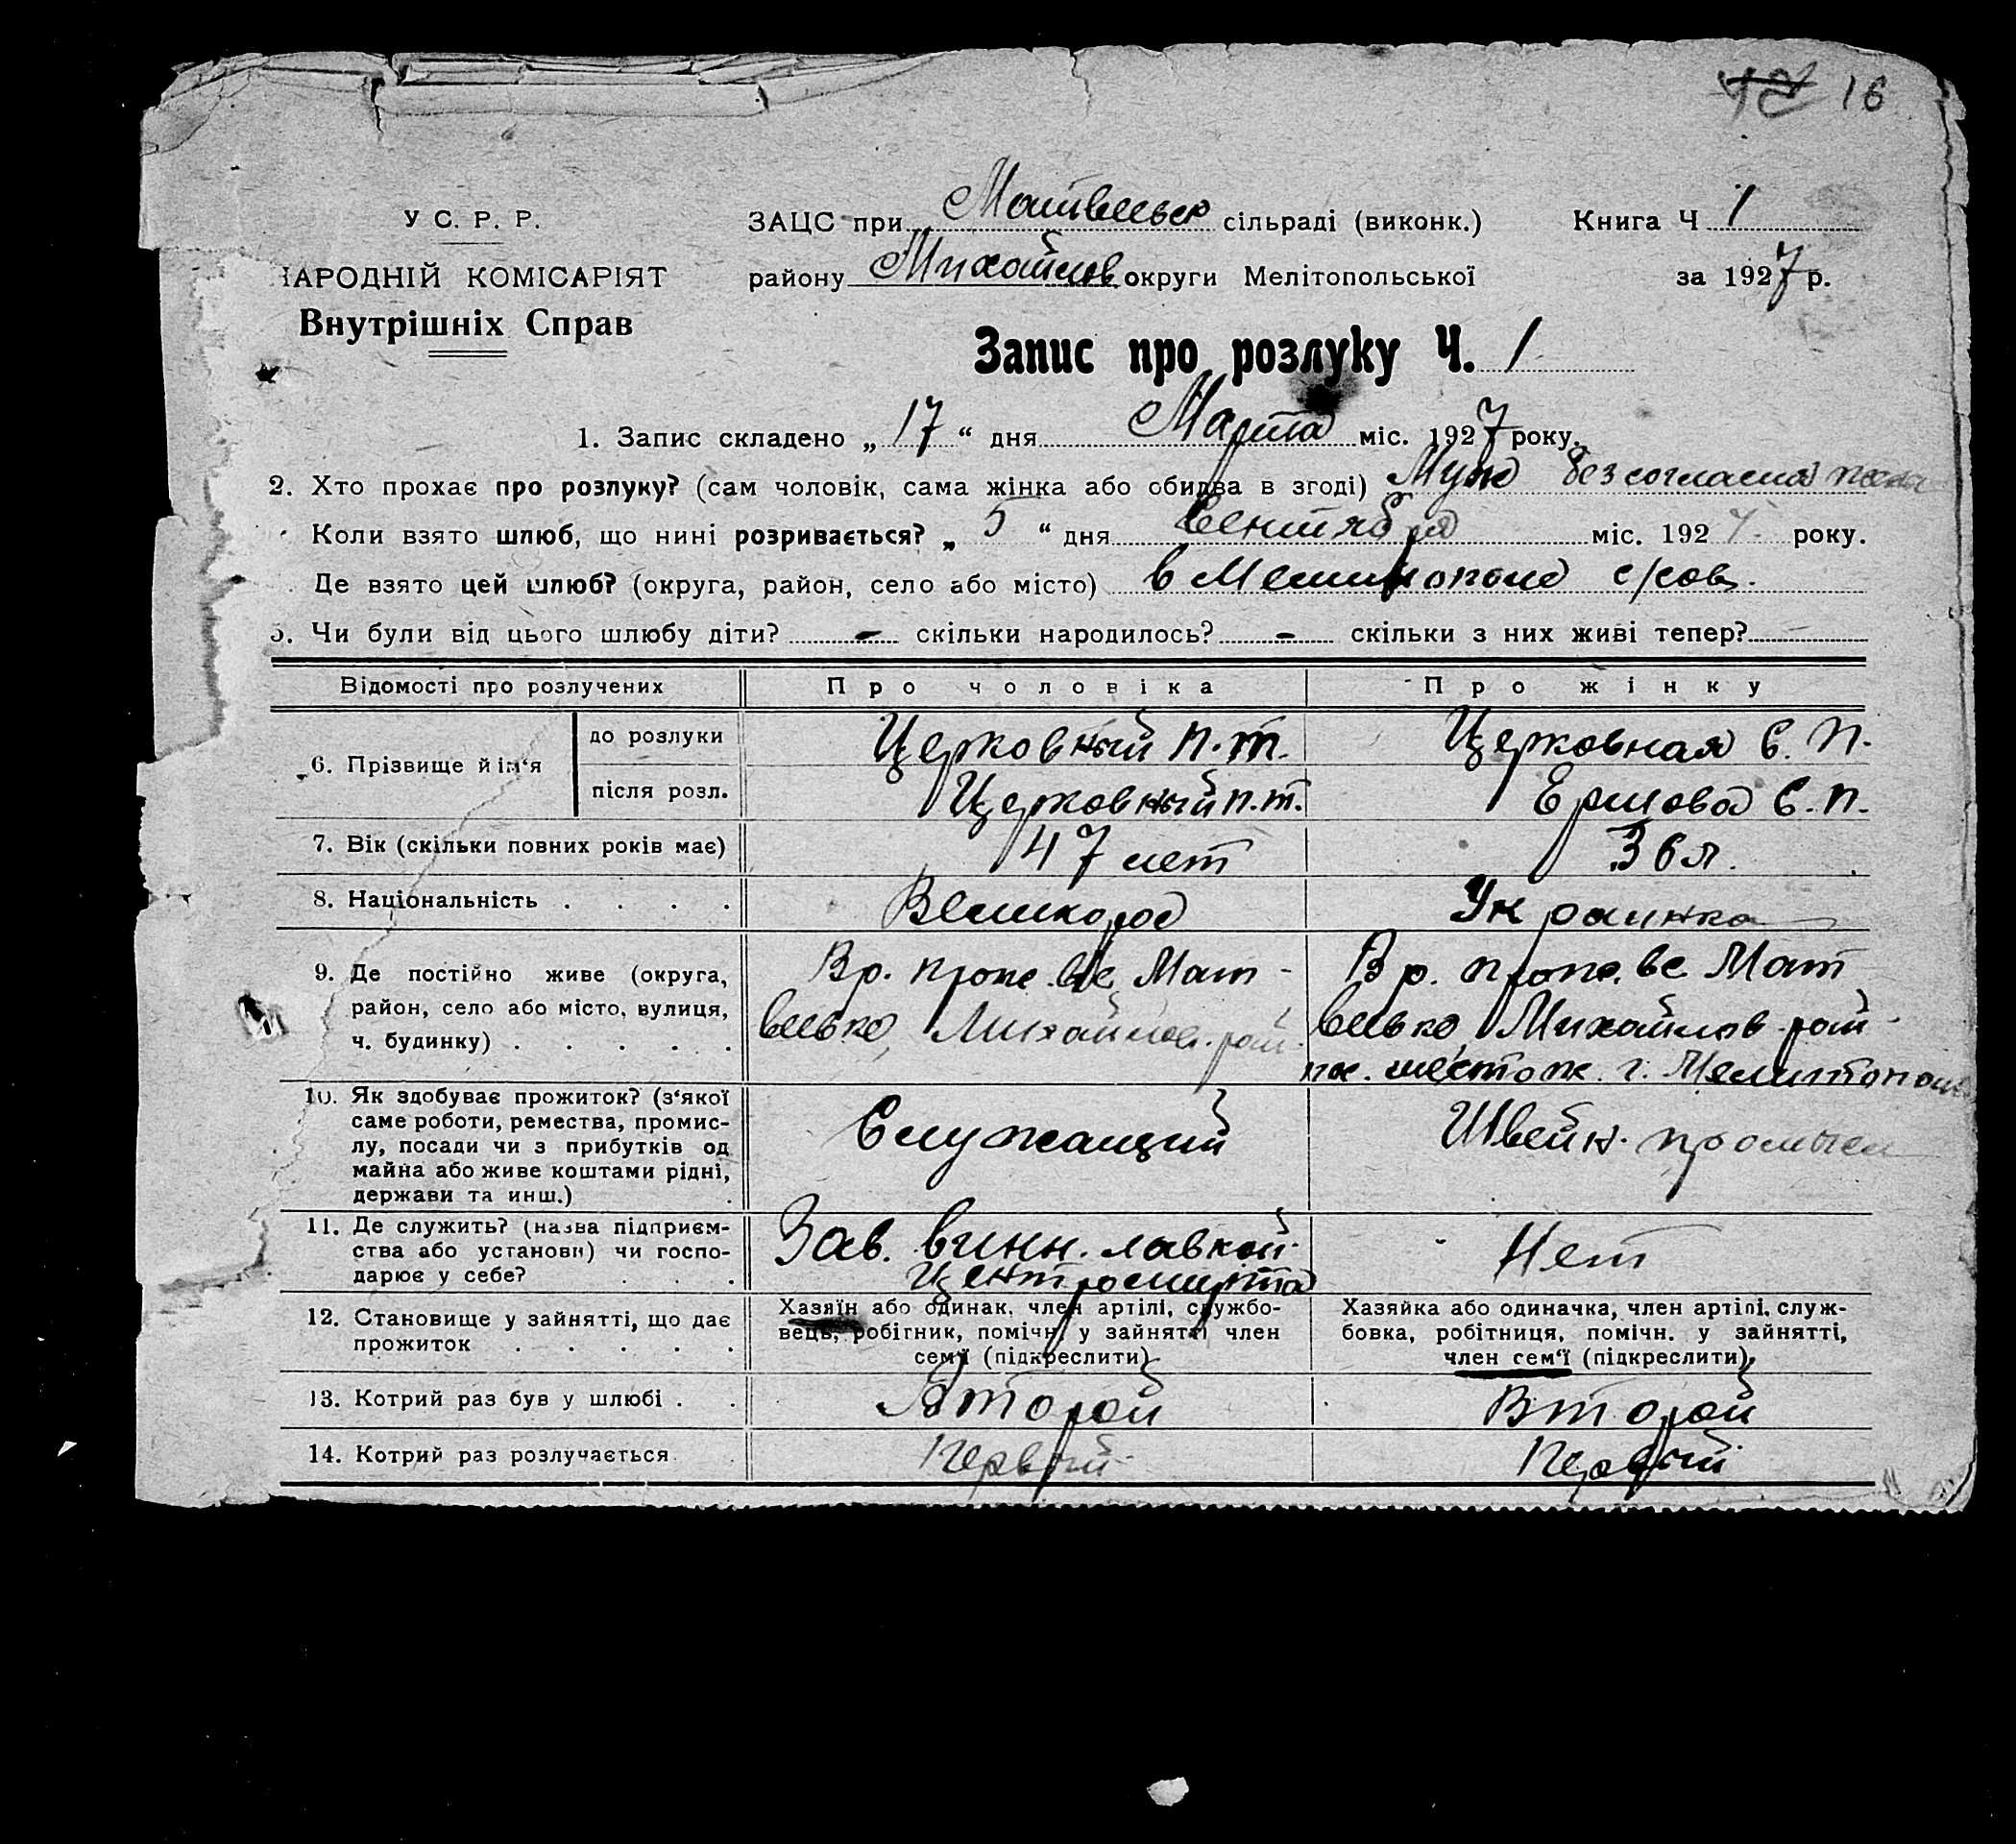 16
У С. Р. Р.
ЗАЦС при Матвеевск сільраді (виконк.) Книга Ч 1
НАРОДНІЙ КОМІСАРІЯТ
району Михайлов округи Мелітопольської за 1927 р.
Внутрішніх Справ
Запис про розлуку Ч. 1
1. Запис складено „ 17 “ дня Марта міс. 1927 року.
2. Хто прохає про розлуку? (сам чоловік, сама жінка або обидва в згоді) Муж без согласия
Коли взято шлюб, що нині розривається? „ 5 “ дня Сентября міс. 192 року.
Де взято цей шлюб? (округа, район, село або місто) в Мелитополе с/сов.
5. Чи були від цього шлюбу діти? – скільки народилось? – скільки з них живі тепер? –
Відомості про розлучених Про чоловіка Про жінку
6. Прізвище й ім‘я
до розлуки Церковный П. Т. Церковная Е. П.
після розл. Церковный П. Т. Ершова Е. П.
7. Вік (скільки повних років має) 47 лет 36 л.
8. Національність . . . . Великорос Украинка
9. Де постійно живе (округа,
район, село або місто, вулиця,
ч. будинку) . . . . .
Вр. прож. в с. Мат-
веевко, Михайлов. рай.
Вр. прож. в с. Мат
веевко, Михайлов. рай.
г. Мелитополь
10. Як здобуває прожиток? (з‘якої
саме роботи, ремества, промис-
лу, посади чи з прибутків од
майна або живе коштами рідні,
держави та инш.) .
Служащий
Швейн. промысел
11. Де служить? (назва підприєм-
ства або установи) чи госпо-
дарює у себе? . . .
Зав. винн. лавкой
Центроспирта
Нет
12. Становище у зайнятті, що дає
прожиток . . . . .
Хазяїн або одинак, член артілі, службо-
вець, робітник, помічн. у зайнятті член
сем‘ї (підкреслити)
Хазяйка або одиначка, член артілі, служ-
бовка, робітниця, помічн. у зайнятті,
член сем‘ї (підкреслити).
13. Котрий раз був у шлюбі . . Второй Второй
14. Котрий раз розлучається Первый Первый